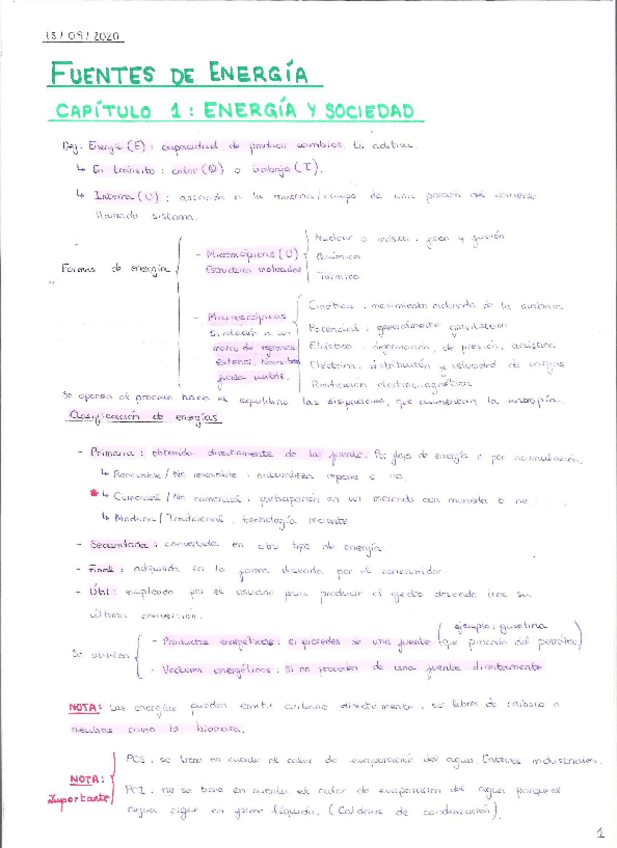 15/09/2020
FUENTES DE ENERGÍA
CAPÍTULO 1: ENERGÍA Y SOCIEDAD
Def: Energía (E): capacidad de producir cambios. Es aditiva.
↳ En tránsito: calor (Q) o trabajo (T).
↳ Interna (U): asociada a la masa/campo de una porción del universo
llamada sistema.
Formas de energía
- Microscópicas (U)
Estructura molecular
Nuclear o másica: fisión y fusión
Química
Térmica
- Macroscópicas
Su relación a un
marco de referencia
externo.
Cinética: movimiento ordenado de la sustancia
Potencial: generalmente gravitatoria
Elástica: deformación, de presión, acústica
Eléctrica: distribución y velocidad de cargas
Radiación electromagnética
Se oponen al proceso hacia el equilibrio las disipaciones, que aumentan la entropía.
Clasificación de energías
- Primaria: obtenida directamente de la fuente. Por flujo de energía o por acumulación.
↳ Renovable / No renovable: naturaleza repone o no.
* ↳ Comercial / No comercial: participación en un mercado con moneda o no
↳ Moderna / Tradicional: tecnología reciente
- Secundaria: convertida en otro tipo de energía
- Final: adquirida en la forma deseada por el consumidor
- Útil: empleada por el usuario para producir el efecto deseado tras su
última conversión.
Se utilizan
- Productos energéticos: si proceden de una fuente (ejemplo: gasolina
que proviene del petróleo)
- Vectores energéticos: si no proceden de una fuente directamente
NOTA: Las energías pueden emitir carbono directamente, ser libres de carbono o
neutras como la biomasa.
NOTA:
Importante
PCS: se tiene en cuenta el calor de evaporación del agua.
PCI: no se tiene en cuenta el calor de evaporación del agua porque el
agua sigue en forma líquida. (Calderas de condensación).
1